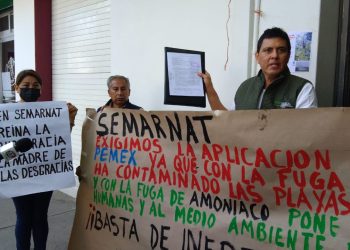 EN SEMARNAT
REINA LA
BUROCRACIA
MADRE DE
LAS DESGRACIAS
SEMARNAT
EXIGIMOS LA APLICACION
PEMEX YA QUE CON LA FUGA
HA CONTAMINADO LAS PLAYAS
Y CON LA FUGA DE AMONIACO PONE
HUMANAS Y AL MEDIO AMBIENTE
¡¡BASTA DE